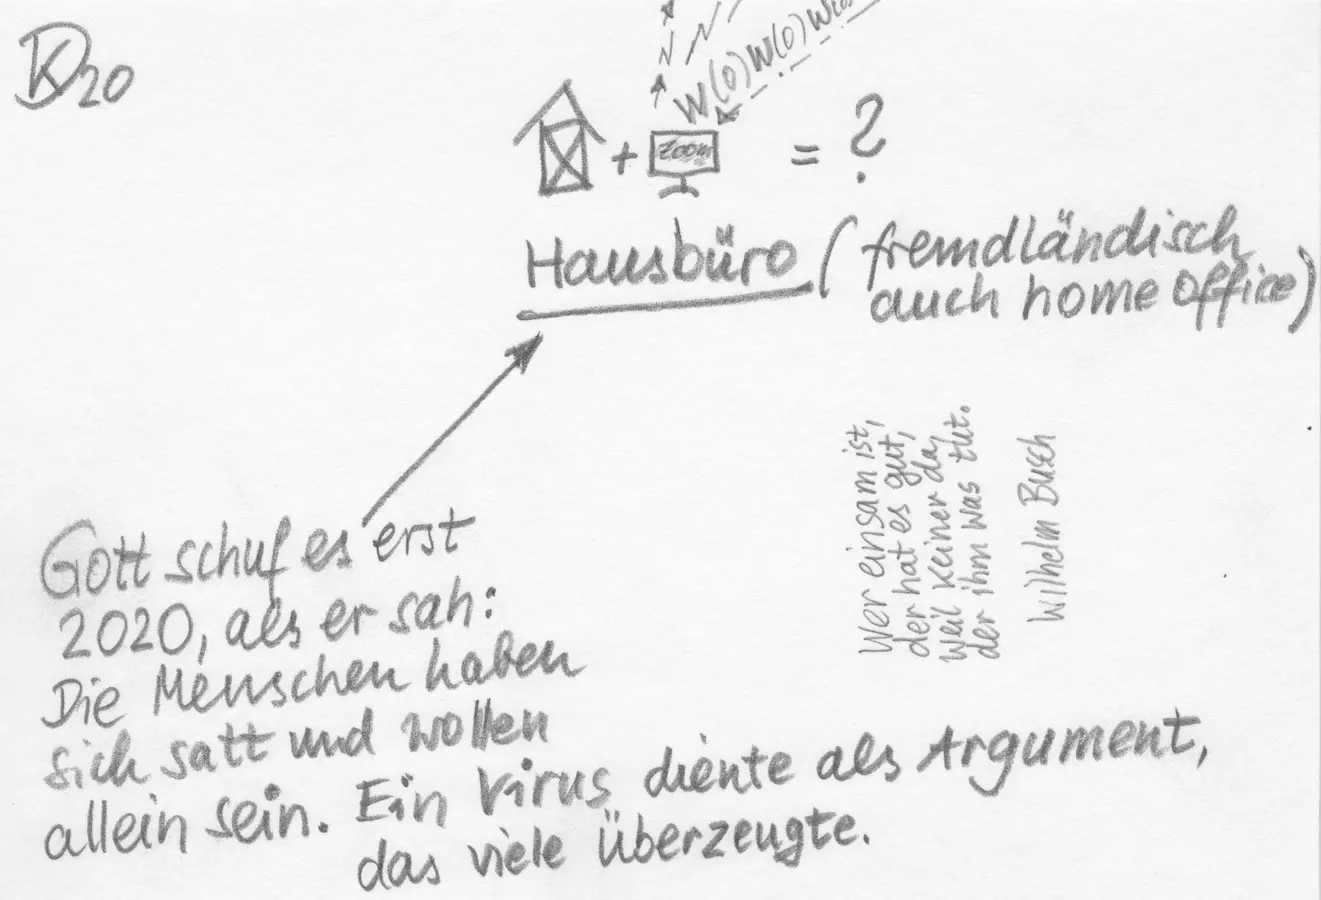 DK20
W(o)W(o)W(o)
+ Zoom = ?
Hausbüro (fremdländisch
auch home office)
Gott schuf es erst
2020, als er sah:
Die Menschen haben
sich satt und wollen
allein sein. Ein Virus diente als Argument,
das viele überzeugte.
Wer einsam ist,
der hat es gut,
weil keiner da,
der ihm was tut.
Wilhelm Busch